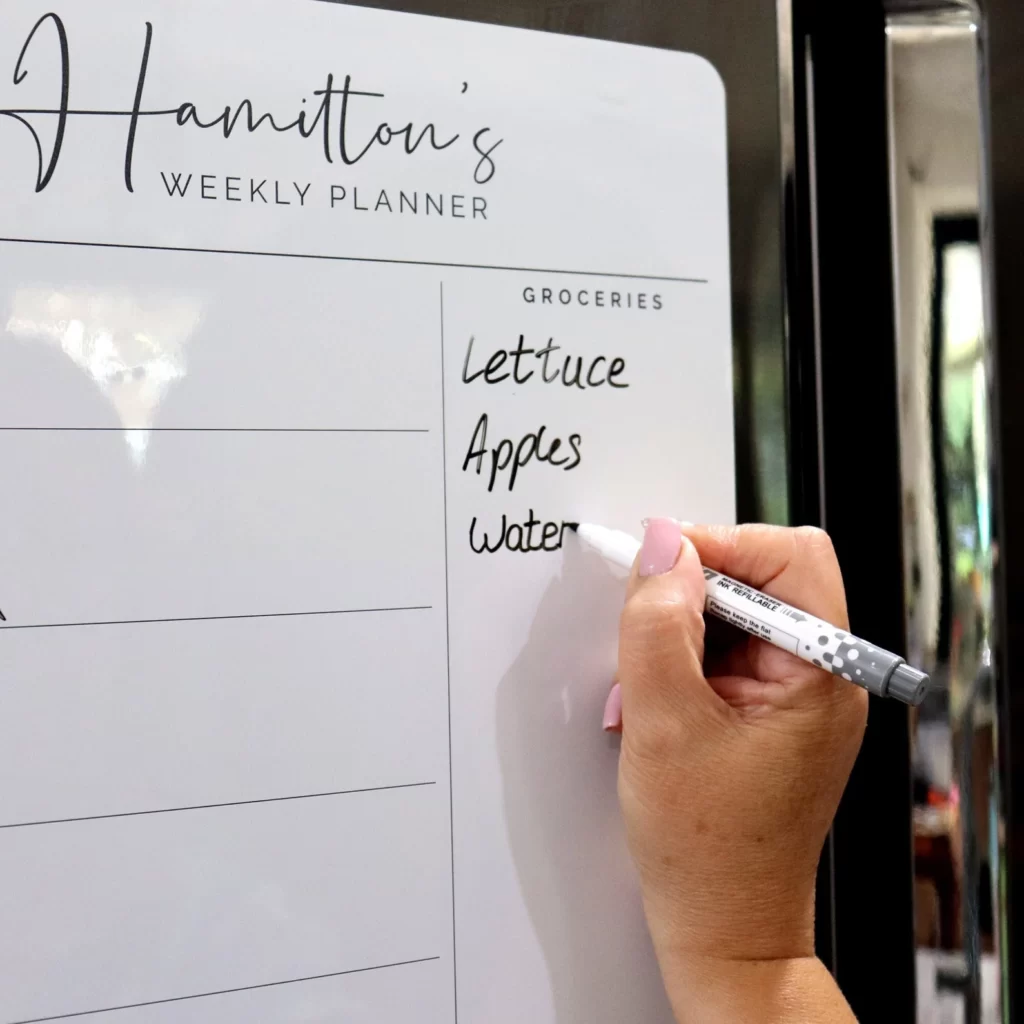 Hamilton's
WEEKLY PLANNER
GROCERIES
Lettuce
Apples
Water
INK REFILLABLE
Please keep the